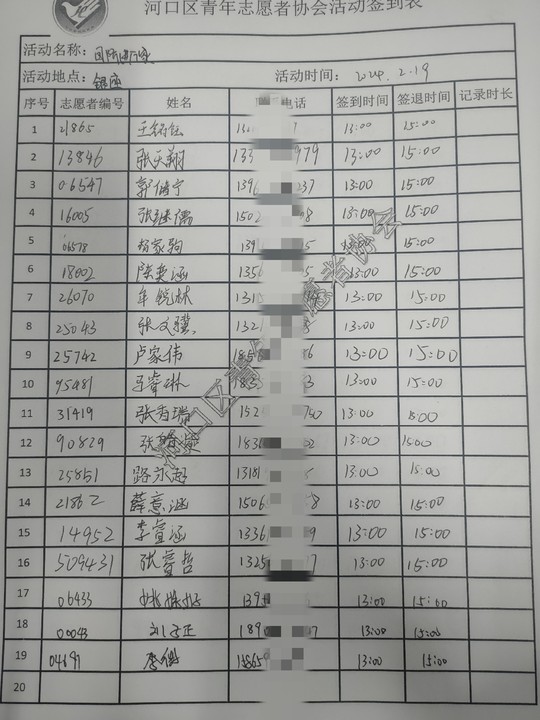 河口区青年志愿者协会活动签到表
活动名称：
活动地点：银座 活动时间：2024.2.19
序号 志愿者编号 姓名 电话 签到时间 签退时间 记录时长
1 21865 13:00 15:00
2 13846 张天翔 133 979 13:00 15:00
3 06547 郭倍宁 1396 237 13:00 15:00
4 16005 张继儒 1502 8 13:00 15:00
5 06578 杨家驹 139 5 13:00 15:00
6 18002 陈奕涵 1356 13:00 15:00
7 26070 牟锐林 1310 13:00 15:00
8 25043 张文骥 1321 13:00 15:00
9 25742 卢家伟 1856 86 13:00 15:00
10 95481 183 3 13:00 15:00
11 31419 张香瑞 152 750 13:00 15:00
12 90829 张 183 02 13:00 15:00
13 25851 路永超 13181 13:00 15:00
14 21862 薛意涵 1506 8 13:00 15:00
15 14952 李萱涵 1336 9 13:00 15:00
16 509431 张睿哲 1325 17 13:00 15:00
17 06433 139 13:00 15:00
18 00043 刘子正 189 7 13:00 15:00
19 04691 13:00 15:00
20
河口区青年志愿者协会